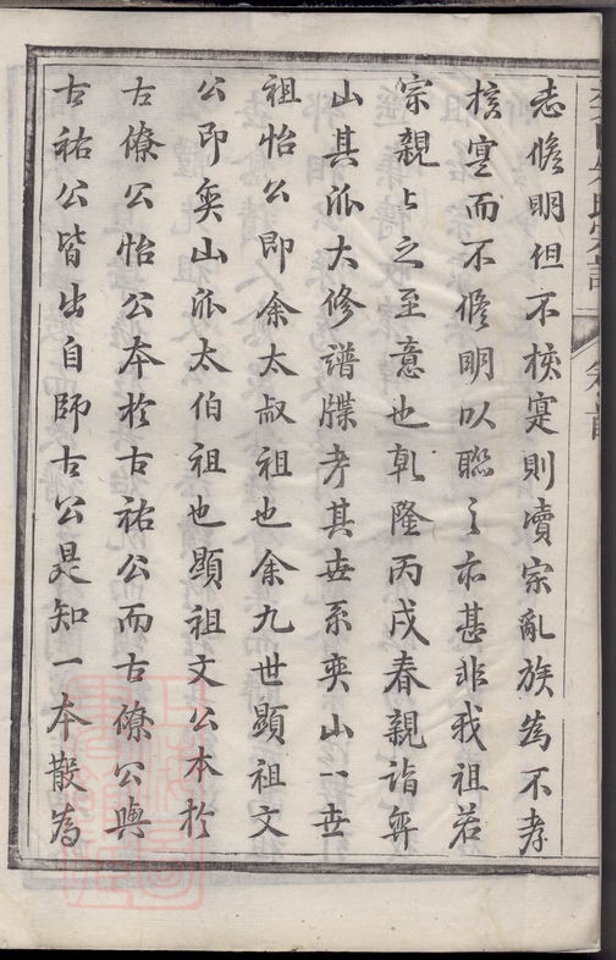 志脩明但不核寔則凟宗亂族為不孝
核寔而不脩明以聮之亦甚非我祖若
宗親上之至意也乹隆丙戌春親詣奕
山其派大修譜牒考其世系奕山一世
祖怡公即余太叔祖也余九世顯祖文
公即奕山派太伯祖也顯祖文公本於
古僚公怡公本於古祐公而古僚公與
古祐公皆出自師古公是知一本散為